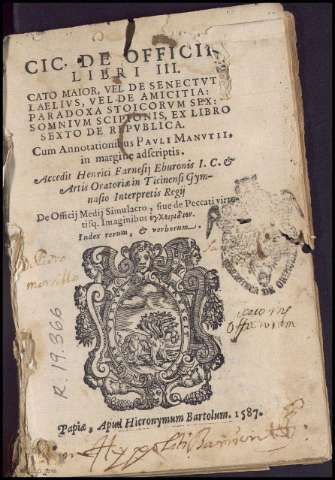 CIC. DE OFFICII
LIBRI III.
CATO MAIOR, VEL DE SENECTVT
LAELIVS, VEL DE AMICITIA:
PARADOXA STOICORVM SEX:
SOMNIVM SCIPIONIS, EX LIBRO
SEXTO DE REPVBLICA.
Cum Annotationibus PAVLI MANVTII,
in margine adscriptis.
Accedit Henrici Farnesij Eburonis I. C. &
Artis Oratoriæ in Ticinensi Gym-
nasio Interpretis Regij
De Officij Medij Simulacro, siue de Peccati virtu-
tisq. Imaginibus
Index rerum, & verborum.
R. 19.366
Papiæ, Apud Hieronymum Bartolum. 1587.